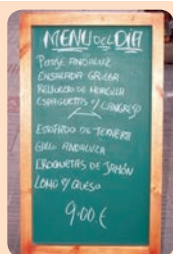 MENU DEL DIA
POTAJE ANDALUZ
ENSALADA GRIEGA
RELLENO DE MORCILLA
ESPAGUETIS
ESTOFADO DE TERNERA
GALLO ANDALUZA
CROQUETAS DE JAMÓN
LOMO Y QUESO
9.00 €